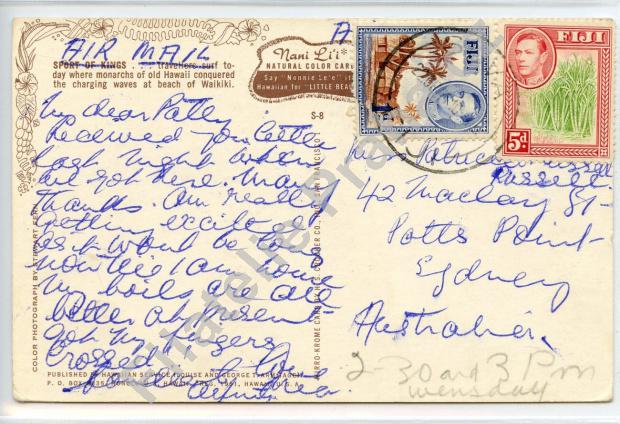 AIR MAIL
SPORT OF KINGS . . . travellers surf to-
day where monarchs of old Hawaii conquered
the charging waves at beach of Waikiki.
Nani Li'i*
NATURAL COLOR CARD
Say "Nonnie Le'e" it's
Hawaiian for "LITTLE BEAUTY"
S-8
FIJI
FIJI
5d
My dear Patty
Received your letter
last night when
we got here. Many
thanks. Am really
getting excited
as it wont be long
now till I am home
My boils are all
better at present
got my fingers
crossed
Miss Patricia Russell
Russell
42 Macleay St-
Potts Point-
Sydney
Australia.
2-30 and 3 Pm
wensday
COLOR PHOTOGRAPH BY STEWART FERN
PUBLISHED BY HAWAIIAN SERVICE (LOUISE AND GEORGE T. ARMITAGE)
P. O. BOX HONOLULU, HAWAII, (REG. 1951, HAWAII) U. S. A.
MIRRO-KROME CARD BY H. S. CROCKER CO., INC., SAN FRANCISCO
Philatelie